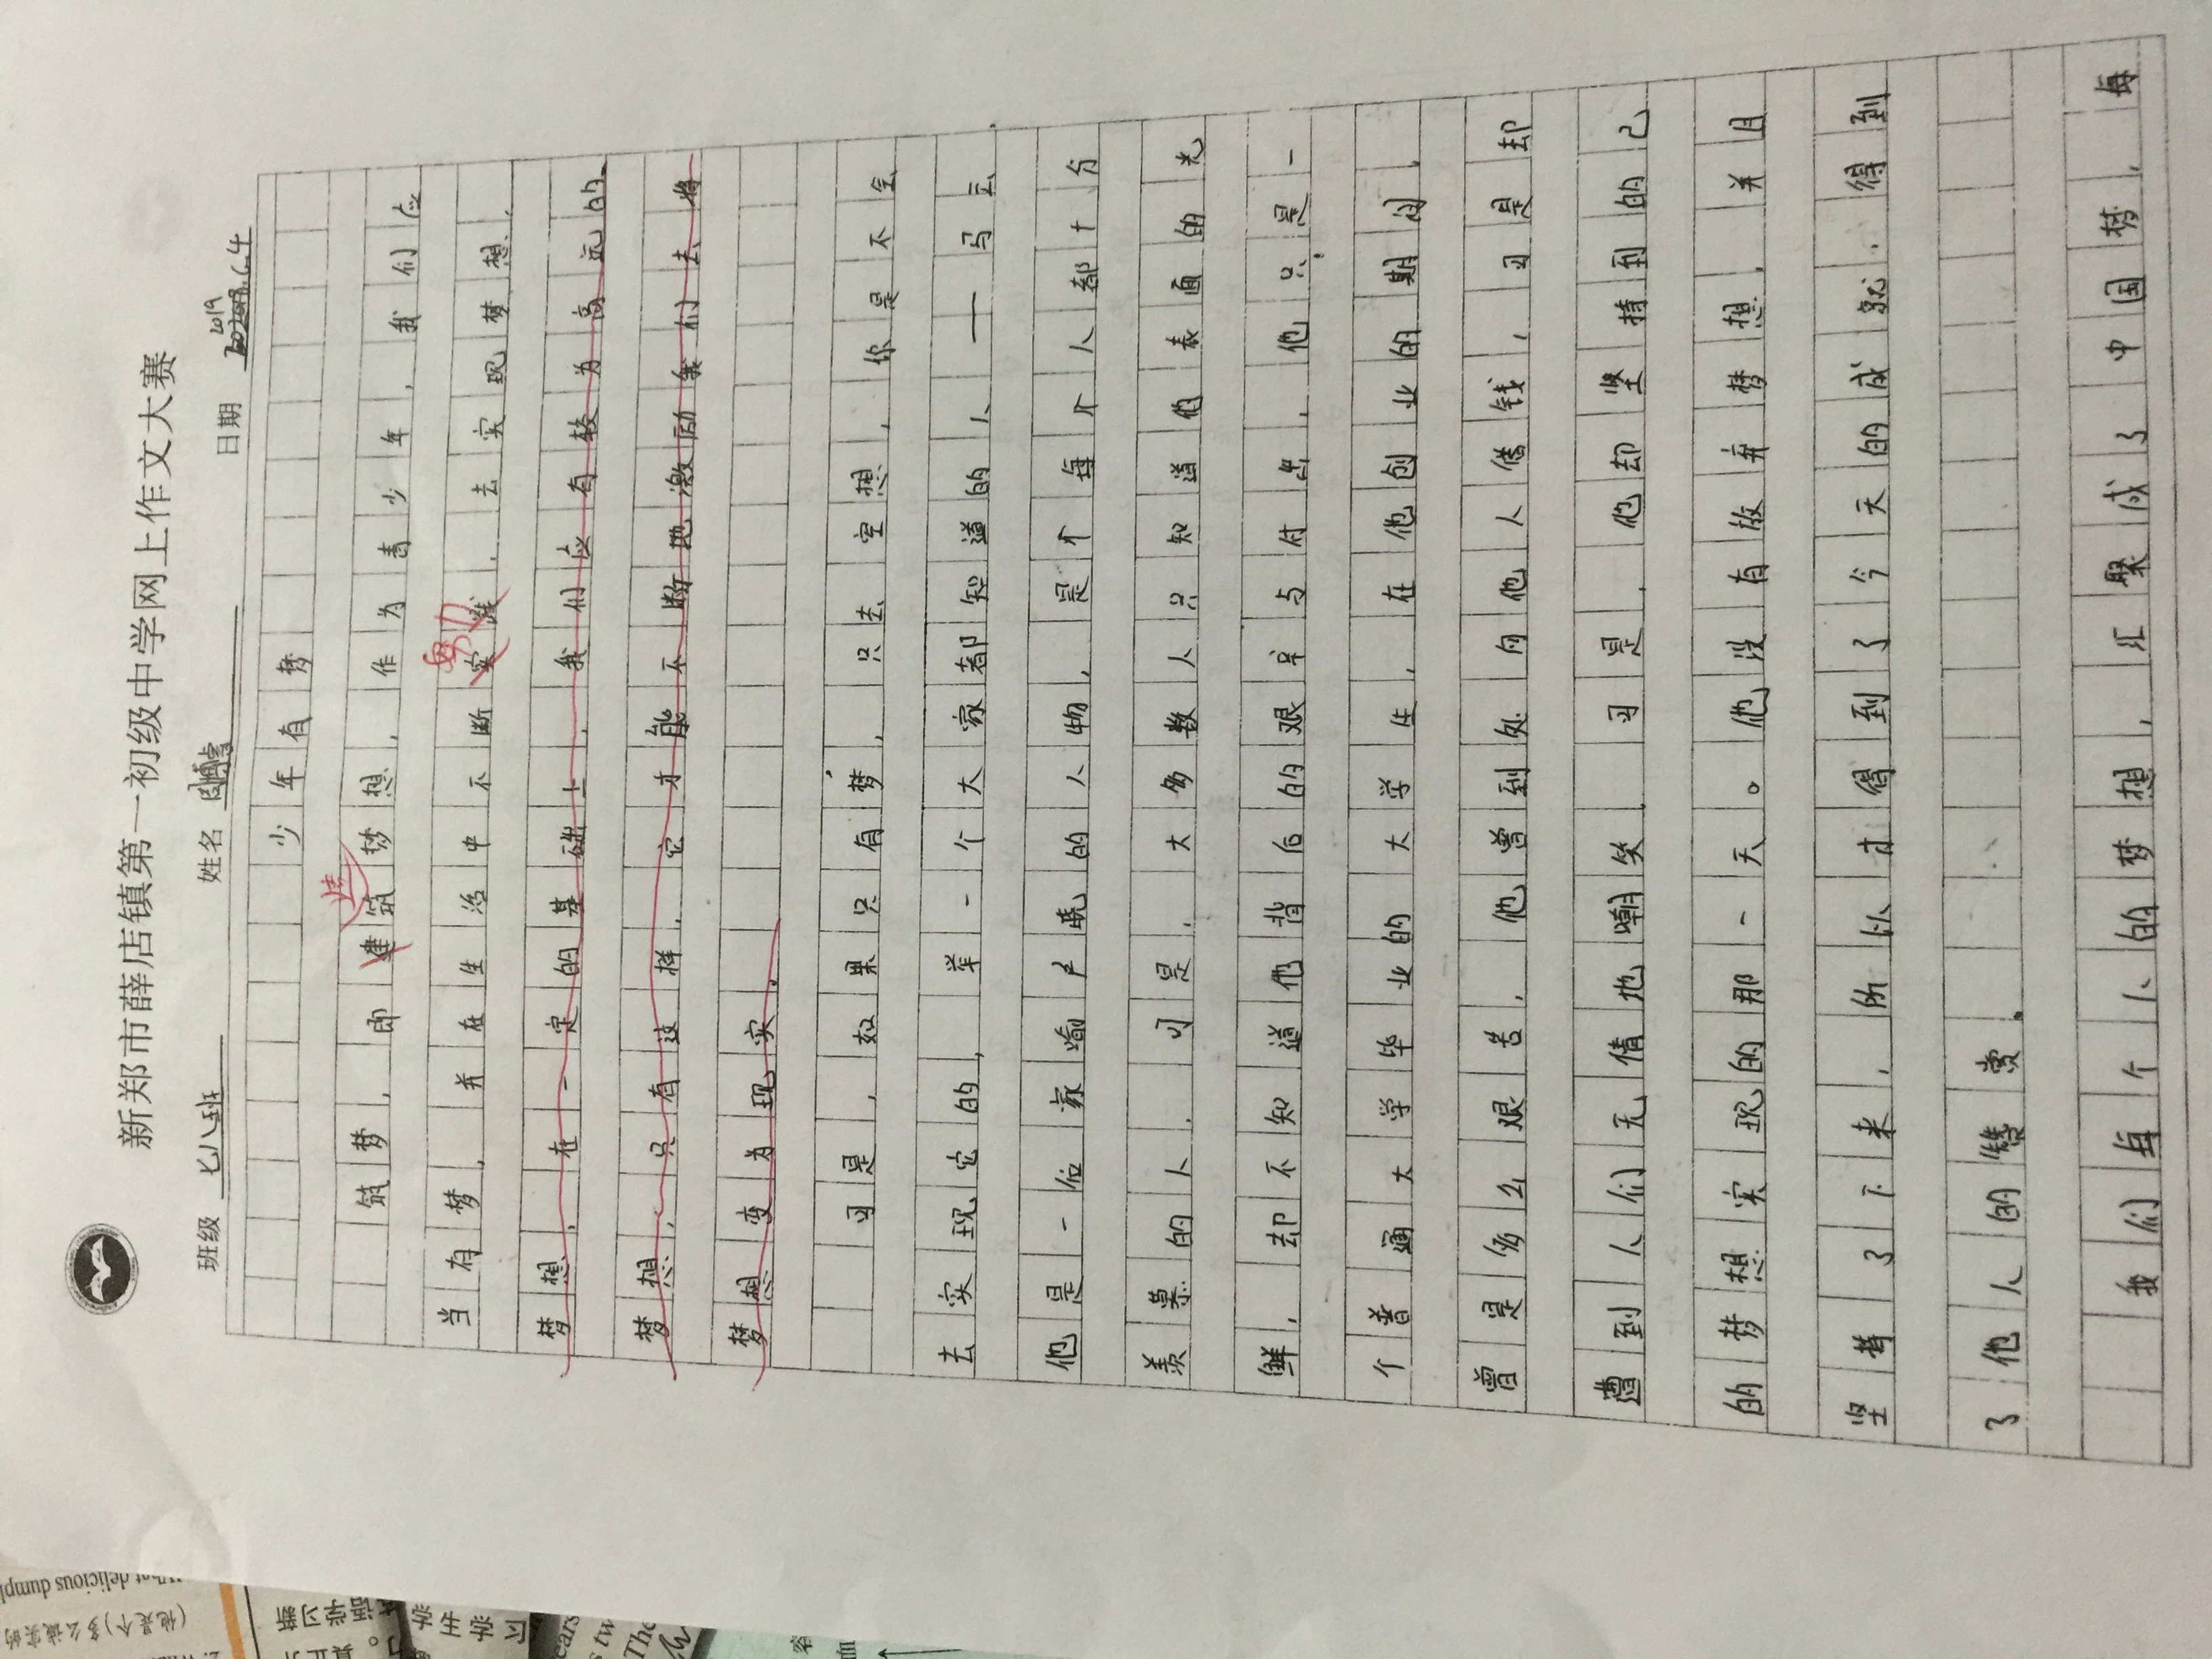 新郑市薛店镇第一初级中学网上作文大赛
班级 七八班 姓名 日期 2019
少年有梦
筑梦，即建筑梦想，作为青少年，我们应
造
当有梦，并在生活中不断实践，去实现梦想．
努力
梦想，在一定的基础上，我们应有较为高远的
梦想，只有这样，它才能不断地激励我们去将
梦想变为现实．
可是，如果只有梦，只去空想，你是不会
去实现它的，举一个大家都知道的人——马云
他是一位家喻户晓的人物，是个每个人都十分
羡慕的人．可是，大多数人只知道他表面的光
鲜，却不知道他背后的艰辛与付出，他只是一
个普通大学毕业的大学生，在他创业的期间，
曾是多么艰苦，他曾到处向他人借钱，可是却
遭到人们无情地嘲笑．可是，他却坚持到的己
的梦想实现的那一天。他没有放弃梦想，并且
坚持了下来，所以才得到了今天的成就．得到
了他人的赞赏．
我们每个人的梦想，汇聚成了中国梦，每
What delicious dumpl
(他是个)多么诚实的